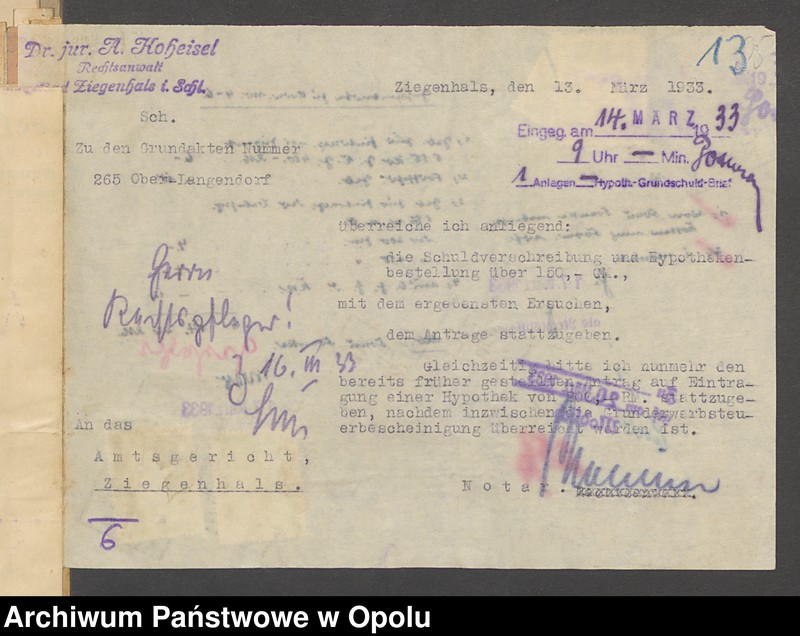 Dr. jur. A. Hoheisel
Rechtsanwalt
Bad Ziegenhals i. Schl.
13
Ziegenhals, den 13. März 1933.
Sch.
Eingeg. am 14. MÄRZ 1933
9 Uhr — Min.
1 Anlagen — Hypoth.-Grundschuld-Brief
Zu den Grundakten Nummer
265 Ober-Langendorf
Überreiche ich anliegend:
die Schuldverschreibung und Hypotheken-
bestellung über 150,- GM.,
mit dem ergebensten Ersuchen,
dem Antrage stattzugeben.
Herrn
Rechtspfleger!
16. III 33
Gleichzeitig bitte ich nunmehr den
bereits früher gestellten Antrag auf Eintra-
gung einer Hypothek von RM. stattzuge-
ben, nachdem inzwischen die Grunderwerbsteu-
erbescheinigung überreicht worden ist.
An das
Amtsgericht,
Ziegenhals.
Notar.
6
Archiwum Państwowe w Opolu